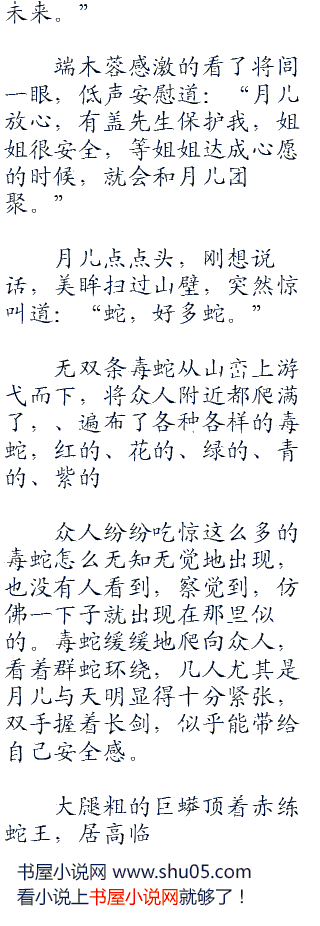 未来。”
端木蓉感激的看了将闾
一眼，低声安慰道：“月儿
放心，有盖先生保护我，姐
姐很安全，等姐姐达成心愿
的时候，就会和月儿团
聚。”
月儿点点头，刚想说
话，美眸扫过山壁，突然惊
叫道：“蛇，好多蛇。”
无双条毒蛇从山峦上游
弋而下，将众人附近都爬满
了，、遍布了各种各样的毒
蛇，红的、花的、绿的、青
的、紫的
众人纷纷吃惊这么多的
毒蛇怎么无知无觉地出现，
也没有人看到，察觉到，仿
佛一下子就出现在那里似
的。毒蛇缓缓地爬向众人，
看着群蛇环绕，几人尤其是
月儿与天明显得十分紧张，
双手握着长剑，似乎能带给
自己安全感。
大腿粗的巨蟒顶着赤练
蛇王，居高临
书屋小说网 www.shu05.com
看小说上书屋小说网就够了！